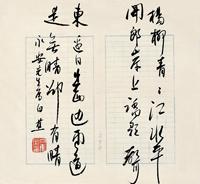 楊柳青青江水平
聞郎岸上踏歌聲
東邊日出西邊雨道
是無晴卻有晴
永安先生屬 白蕉